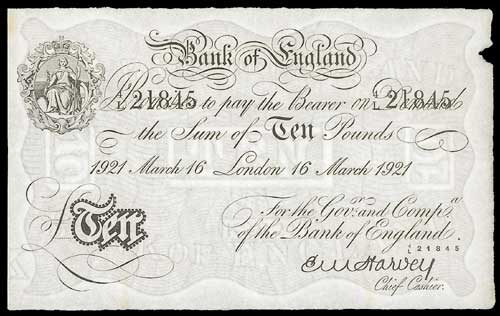 Bank of England
21845 to pay the Bearer on 21845
the Sum of Ten Pounds
1921 March 16 London 16 March 1921
£Ten
For the Govr. and Compa.
of the Bank of England.
21845
E.M. Harvey
Chief Cashier.